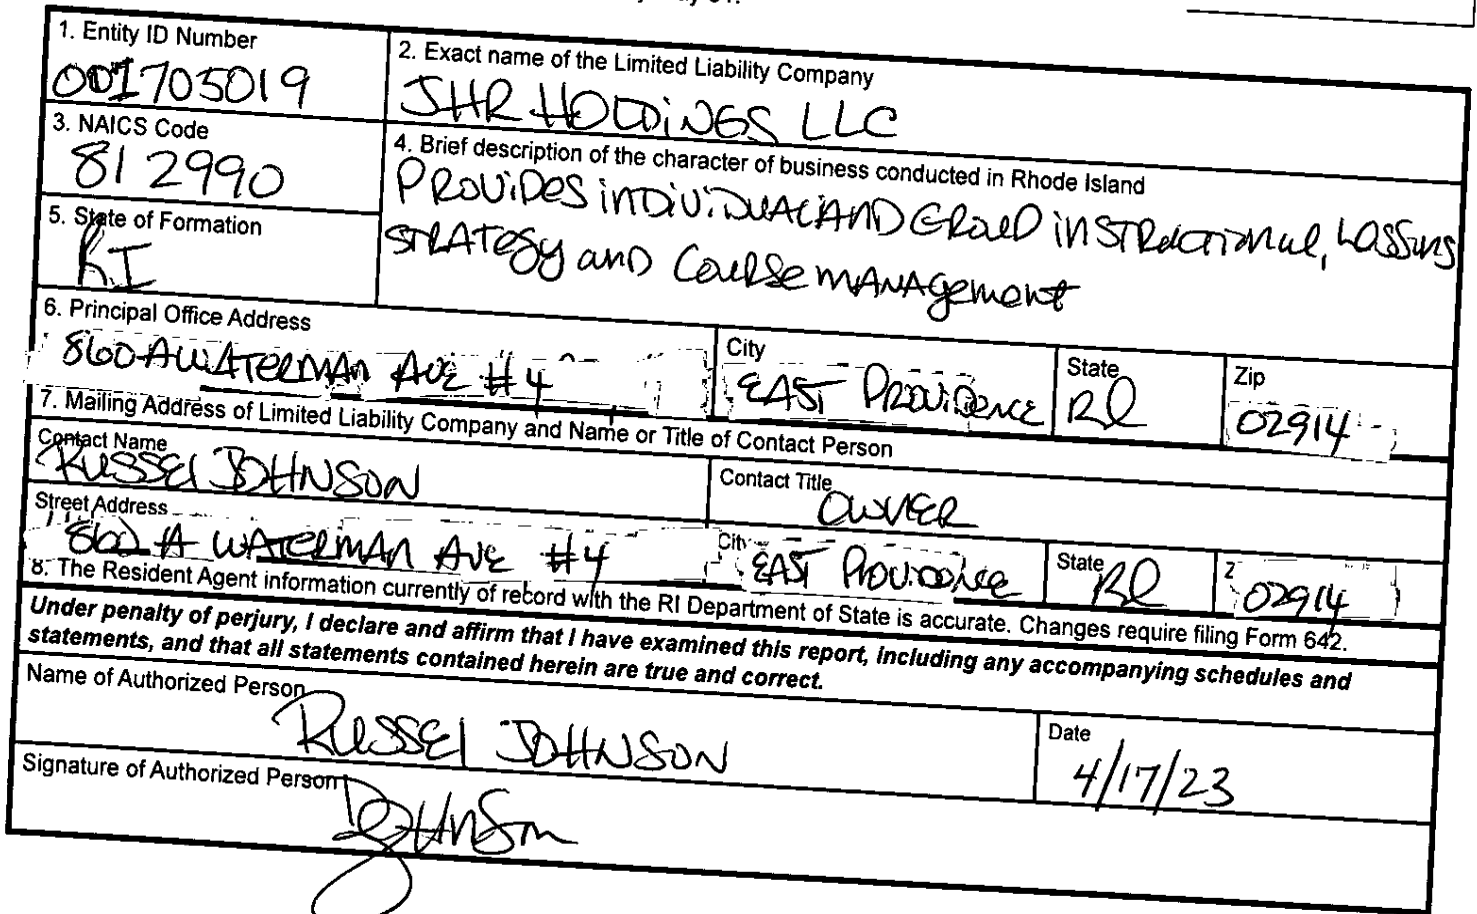 1. Entity ID Number
001705019
2. Exact name of the Limited Liability Company
JHR HOLDINGS LLC
3. NAICS Code
812990
4. Brief description of the character of business conducted in Rhode Island
PROVIDES INDIVIDUAL AND GROUP INSTRUCTIONAL,
STRATEGY AND COURSE MANAGEMENT
5. State of Formation
RI
6. Principal Office Address
860 A WATERMAN AVE #4
City
EAST PROVIDENCE
State
RI
Zip
02914
7. Mailing Address of Limited Liability Company and Name or Title of Contact Person
Contact Name
RUSSEL JOHNSON
Contact Title
OWNER
Street Address
860 A WATERMAN AVE #4
City
EAST PROVIDENCE
State
RI
Z
02914
8. The Resident Agent information currently of record with the RI Department of State is accurate. Changes require filing Form 642.
Under penalty of perjury, I declare and affirm that I have examined this report, including any accompanying schedules and
statements, and that all statements contained herein are true and correct.
Name of Authorized Person
RUSSEL JOHNSON
Date
4/17/23
Signature of Authorized Person
Johnson